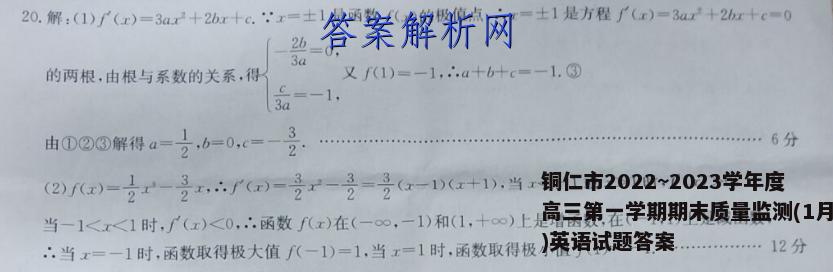 20.解:(1)f′(x)=3ax²+2bx+c.∵x=±1是函数f(x)的极值点,∴x=±1是方程f′(x)=3ax²+2bx+c=0
答案解析网
的两根,由根与系数的关系,得{-2b/3a=0, c/3a=-1, 又f(1)=-1,∴a+b+c=-1.③
由①②③解得a=1/2,b=0,c=-3/2. 6分
(2)f(x)=1/2x³-3/2x,∴f′(x)=3/2x²-3/2=3/2(x-1)(x+1),当x
当-1<x<1时,f′(x)<0,∴函数f(x)在(-∞,-1)和(1,+∞)上是增函数,在
∴当x=-1时,函数取得极大值f(-1)=1,当x=1时,函数取得极小值 12分
铜仁市2022~2023学年度
高三第一学期期末质量监测(1月
)英语试题答案